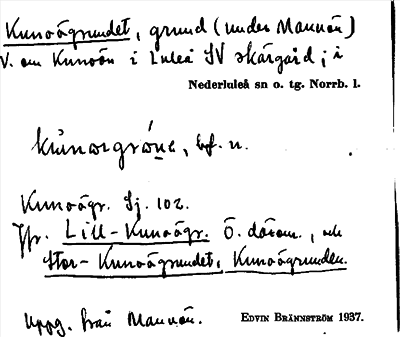 Kunoögrundet, grund (under Mannön)
V. om Kunoön i Luleå SV skärgård; i
Nederluleå sn o. tg. Norrb. l.
bf. n.
Kunoögr. Sj. 102.
Jfr. Lill-Kunoögr. Ö. därom, och
Stor-Kunoögrundet, Kunoögrunden.
Uppg. från Mannön. EDVIN BRÄNNSTRÖM 1937.